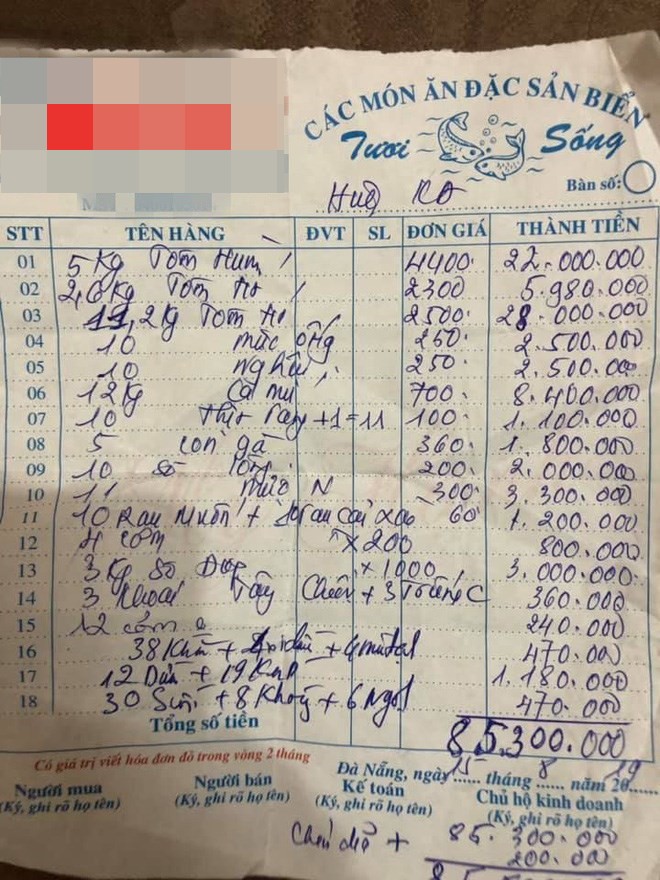 CÁC MÓN ĂN ĐẶC SẢN BIỂN
Tươi Sống
Bàn số:
STT TÊN HÀNG ĐVT SL ĐƠN GIÁ THÀNH TIỀN
01 5 Kg Tôm Hùm 4400 22.000.000
02 2,6 Kg Tôm 2300 5.980.000
03 11,2 Kg Tôm 2500 28.000.000
04 10 mực ống 250 2.500.000
05 10 nghêu 250 2.500.000
06 12 Kg Cá mú 700 8.400.000
07 10 +1=11 100 1.100.000
08 5 con gà 360 1.800.000
09 10 sò lông 200 2.000.000
10 11 mực N 300 3.300.000
11 10 Rau Muốn + 10 rau cải xào 60 1.200.000
12 4 cơm x200 800.000
13 3 Kg sò x1000 3.000.000
14 3 Khoai Tây Chiên + 3 Trứng C 360.000
15 12 cơm 240.000
16 38 Khăn + 470.000
17 12 Dừa + 19 1.180.000
18 30 + 8 + 6 Ngọt 470.000
Tổng số tiền 85.300.000
Có giá trị viết hóa đơn đỏ trong vòng 2 tháng
Đà Nẵng, ngày 15 tháng 8 năm 2019
Người mua Người bán Kế toán Chủ hộ kinh doanh
(Ký, ghi rõ họ tên) (Ký, ghi rõ họ tên) (Ký, ghi rõ họ tên) (Ký, ghi rõ họ tên)
+ 85.300.000
200.000